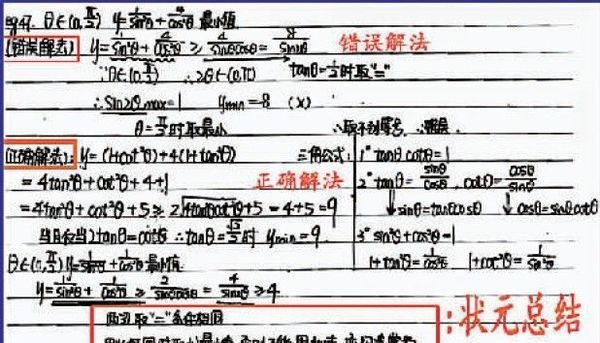 θ∈(0,π/2) y=1/sin²θ+4/cos²θ 最小值
(错误解法) y=1/sin²θ+4/cos²θ ≥ 4/sinθcosθ=8/sin2θ 错误解法
∵θ∈(0,π/2) ∴2θ∈(0,π) tanθ=1/2时取"="
∴sin2θmax=1 ymin=8 (×)
θ=π/4时取最小 ∴取不到等号
(正确解法): y=(1+cot²θ)+4(1+tan²θ) 三角公式: 1° tanθcotθ=1
=4tan²θ+cot²θ+4+1 正确解法 2° tanθ=sinθ/cosθ, cotθ=cosθ/sinθ
=4tan²θ+cot²θ+5≥2√4tan²θcot²θ+5=4+5=9 ↓sinθ=tanθcosθ ↓cosθ=sinθcotθ
当且仅当2tanθ=cotθ ∴tanθ=√2/2时 ymin=9. 3° sin²θ+cos²θ=1
θ∈(0,π/2) y=1/sin²θ+1/cos²θ最小值 1+tan²θ=1/cos²θ 1+cot²θ=1/sin²θ
y=1/sin²θ+1/cos²θ≥2/sinθcosθ=4/sin2θ≥4
两次取"="条件相同
:状元总结